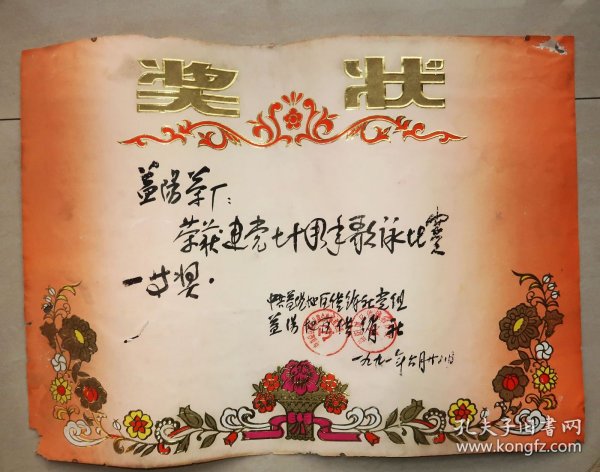 奖状
益阳茶厂：
荣获建党七十周年歌咏比赛
一等奖.
中共益阳地区供销社党组
益阳地区供销社
一九九一年六月十八日
孔夫子旧书网
www.kongfz.com